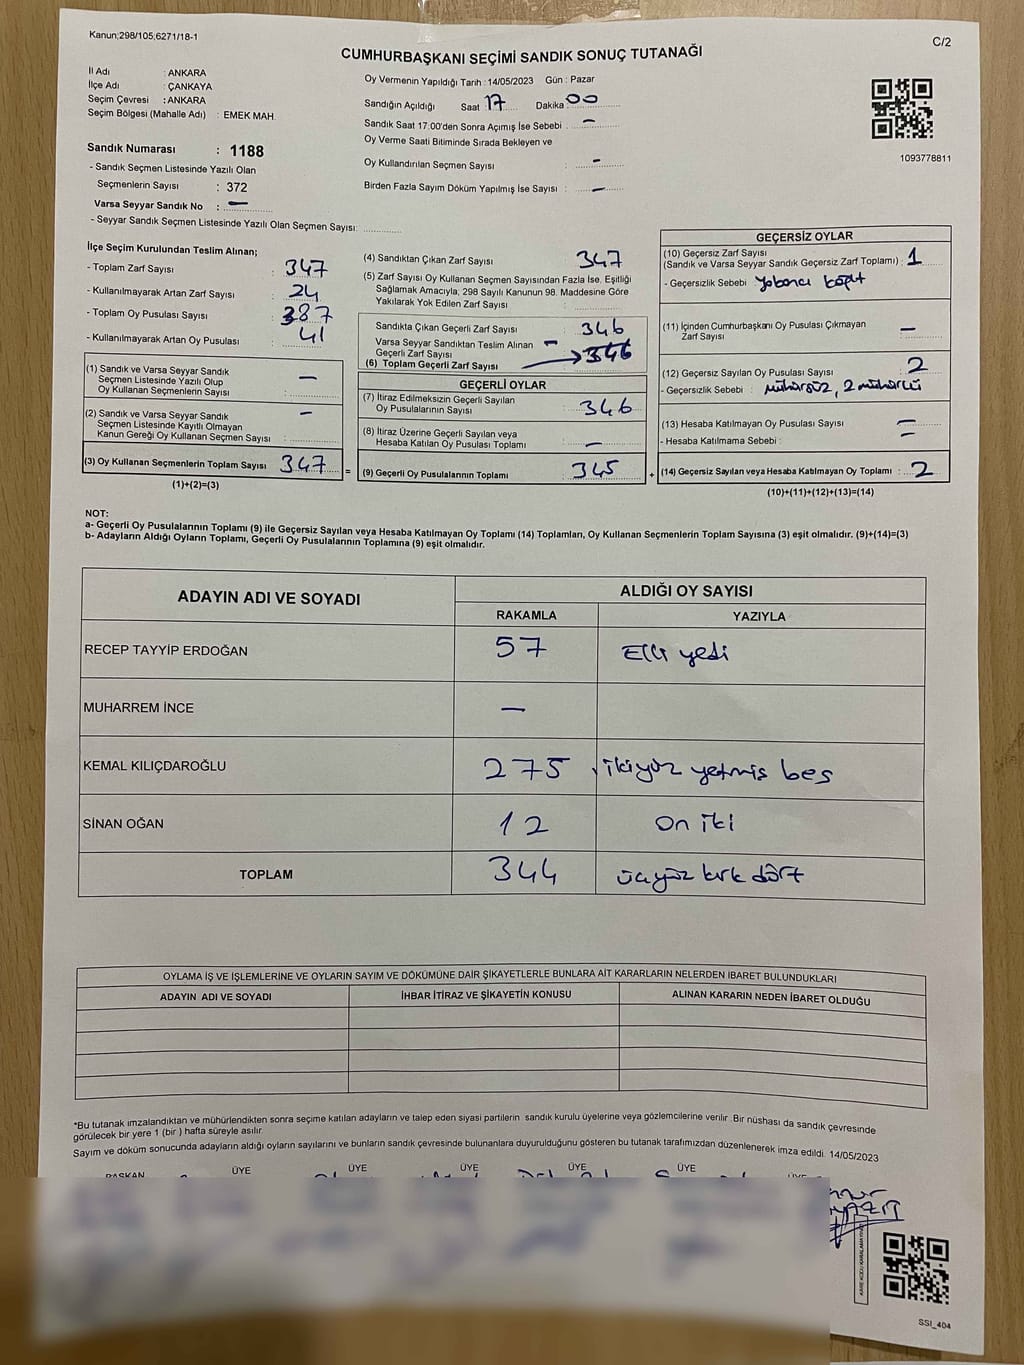 Kanun;298/105;6271/18-1
C/2
CUMHURBAŞKANI SEÇİMİ SANDIK SONUÇ TUTANAĞI
İl Adı : ANKARA
İlçe Adı : ÇANKAYA
Seçim Çevresi : ANKARA
Seçim Bölgesi (Mahalle Adı) : EMEK MAH.
Sandık Numarası : 1188
- Sandık Seçmen Listesinde Yazılı Olan
Seçmenlerin Sayısı : 372
Varsa Seyyar Sandık No : —
- Seyyar Sandık Seçmen Listesinde Yazılı Olan Seçmen Sayısı:
Oy Vermenin Yapıldığı Tarih : 14/05/2023 Gün : Pazar
Sandığın Açıldığı Saat 17 Dakika 00
Sandık Saat 17:00'den Sonra Açımış İse Sebebi : —
Oy Verme Saati Bitiminde Sırada Bekleyen ve
Oy Kullandırılan Seçmen Sayısı : —
Birden Fazla Sayım Döküm Yapılmış İse Sayısı : —
1093778811
İlçe Seçim Kurulundan Teslim Alınan;
- Toplam Zarf Sayısı : 347
- Kullanılmayarak Artan Zarf Sayısı : 24
- Toplam Oy Pusulası Sayısı : 387
- Kullanılmayarak Artan Oy Pusulası : 41
(1) Sandık ve Varsa Seyyar Sandık
Seçmen Listesinde Yazılı Olup
Oy Kullanan Seçmenlerin Sayısı : —
(2) Sandık ve Varsa Seyyar Sandık
Seçmen Listesinde Kayıtlı Olmayan
Kanun Gereği Oy Kullanan Seçmen Sayısı : —
(3) Oy Kullanan Seçmenlerin Toplam Sayısı 347 =
(1)+(2)=(3)
(4) Sandıktan Çıkan Zarf Sayısı : 347
(5) Zarf Sayısı Oy Kullanan Seçmen Sayısından Fazla İse, Eşitliği
Sağlamak Amacıyla, 298 Sayılı Kanunun 98. Maddesine Göre
Yakılarak Yok Edilen Zarf Sayısı :
Sandıkta Çıkan Geçerli Zarf Sayısı : 346
Varsa Seyyar Sandıktan Teslim Alınan —
Geçerli Zarf Sayısı
(6) Toplam Geçerli Zarf Sayısı 346
GEÇERLİ OYLAR
(7) İtiraz Edilmeksizin Geçerli Sayılan
Oy Pusulalarının Sayısı : 346
(8) İtiraz Üzerine Geçerli Sayılan veya
Hesaba Katılan Oy Pusulaları Toplamı : —
(9) Geçerli Oy Pusulalarının Toplamı : 345 +
GEÇERSİZ OYLAR
(10) Geçersiz Zarf Sayısı
(Sandık ve Varsa Seyyar Sandık Geçersiz Zarf Toplamı) : 1
- Geçersizlik Sebebi : Yabancı kağıt
(11) İçinden Cumhurbaşkanı Oy Pusulası Çıkmayan
Zarf Sayısı : —
(12) Geçersiz Sayılan Oy Pusulası Sayısı : 2
- Geçersizlik Sebebi : Mühürsüz, 2 mühürlü
(13) Hesaba Katılmayan Oy Pusulası Sayısı : —
- Hesaba Katılmama Sebebi : —
(14) Geçersiz Sayılan veya Hesaba Katılmayan Oy Toplamı : 2
(10)+(11)+(12)+(13)=(14)
NOT:
a- Geçerli Oy Pusulalarının Toplamı (9) ile Geçersiz Sayılan veya Hesaba Katılmayan Oy Toplamı (14) Toplamları, Oy Kullanan Seçmenlerin Toplam Sayısına (3) eşit olmalıdır. (9)+(14)=(3)
b- Adayların Aldığı Oyların Toplamı, Geçerli Oy Pusulalarının Toplamına (9) eşit olmalıdır.
ADAYIN ADI VE SOYADI
ALDIĞI OY SAYISI
RAKAMLA YAZIYLA
RECEP TAYYİP ERDOĞAN 57 Elli yedi
MUHARREM İNCE —
KEMAL KILIÇDAROĞLU 275 ikiyüz yetmiş beş
SİNAN OĞAN 12 On iki
TOPLAM 344 üçyüz kırk dört
OYLAMA İŞ VE İŞLEMLERİNE VE OYLARIN SAYIM VE DÖKÜMÜNE DAİR ŞİKAYETLERLE BUNLARA AİT KARARLARIN NELERDEN İBARET BULUNDUKLARI
ADAYIN ADI VE SOYADI İHBAR İTİRAZ VE ŞİKAYETİN KONUSU ALINAN KARARIN NEDEN İBARET OLDUĞU
*Bu tutanak imzalandıktan ve mühürlendikten sonra seçime katılan adayların ve talep eden siyasi partilerin sandık kurulu üyelerine veya gözlemcilerine verilir. Bir nüshası da sandık çevresinde
görülecek bir yere 1 (bir) hafta süreyle asılır.
Sayım ve döküm sonucunda adayların aldığı oyların sayılarını ve bunların sandık çevresinde bulunanlara duyurulduğunu gösteren bu tutanak tarafımızdan düzenlenerek imza edildi. 14/05/2023
BAŞKAN ÜYE ÜYE ÜYE ÜYE ÜYE ÜYE
SSI_404